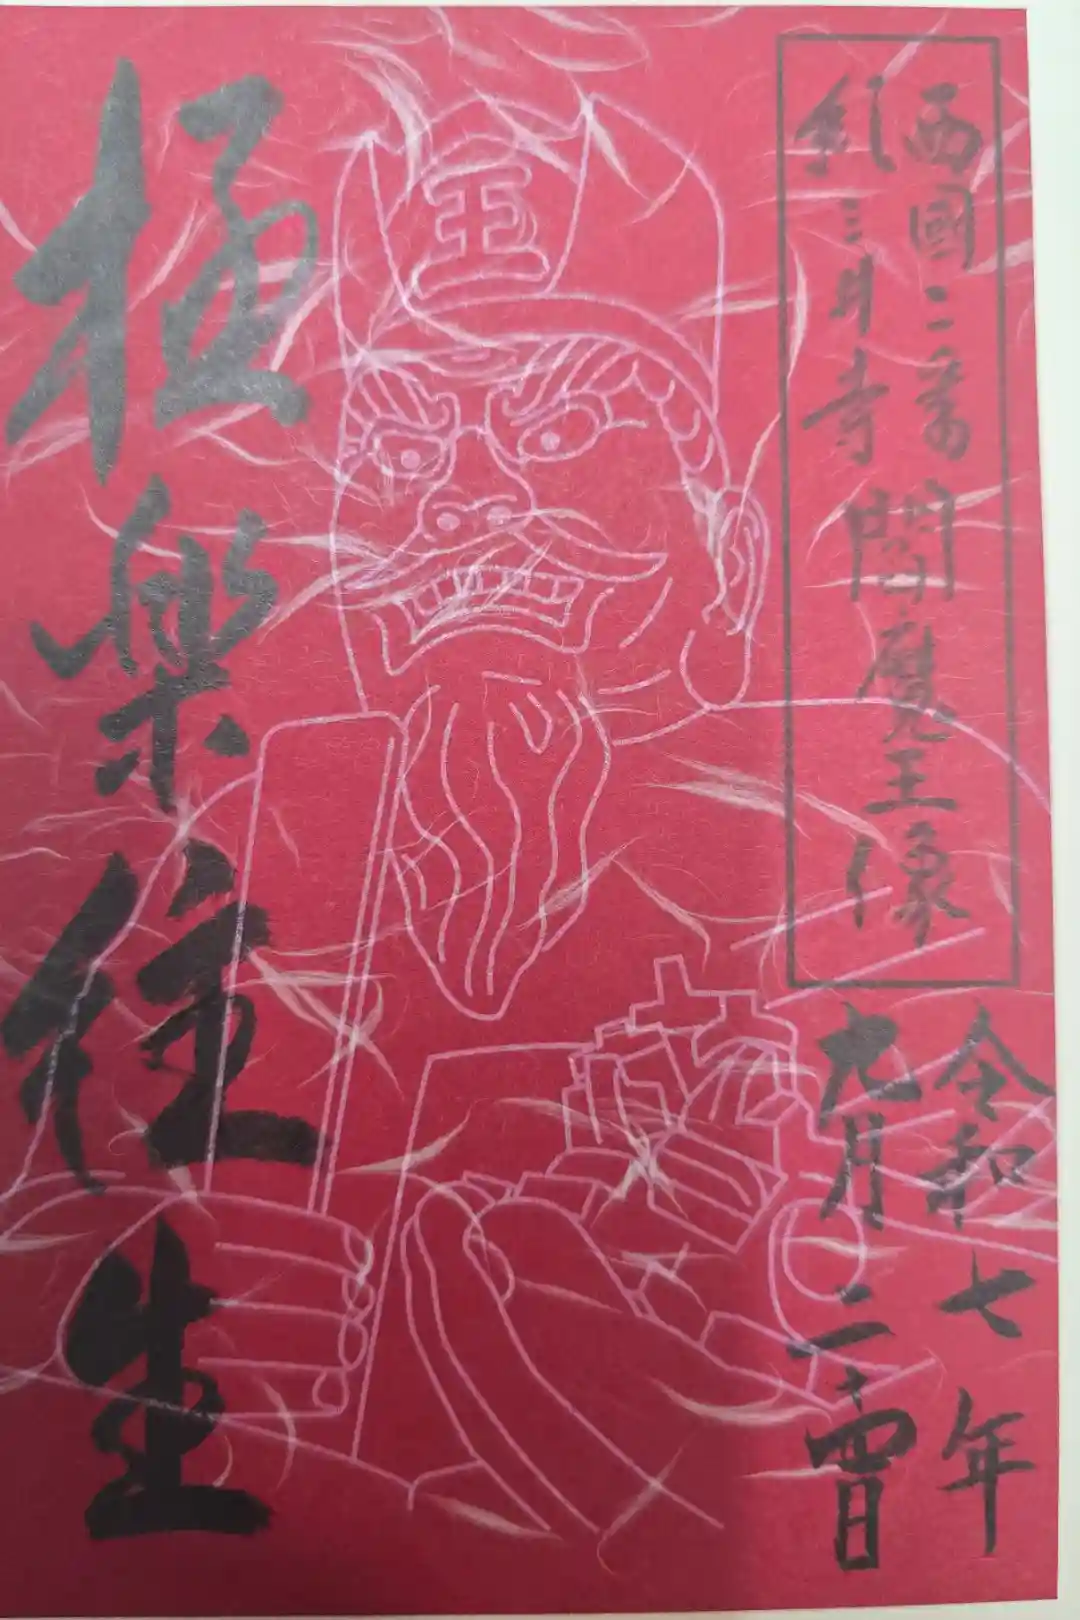 西國二番 閻魔王像
紀三井寺
令和七年
九月二十四日
王
極樂往生